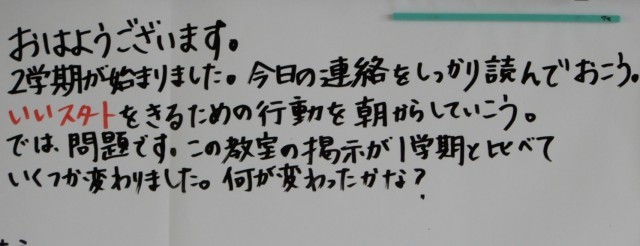 おはようございます。
2学期が始まりました。今日の連絡をしっかり読んでおこう。
いいスタートをきるための行動を朝からしていこう。
では、問題です。この教室の掲示が1学期と比べて
いくつか変わりました。何が変わったかな?